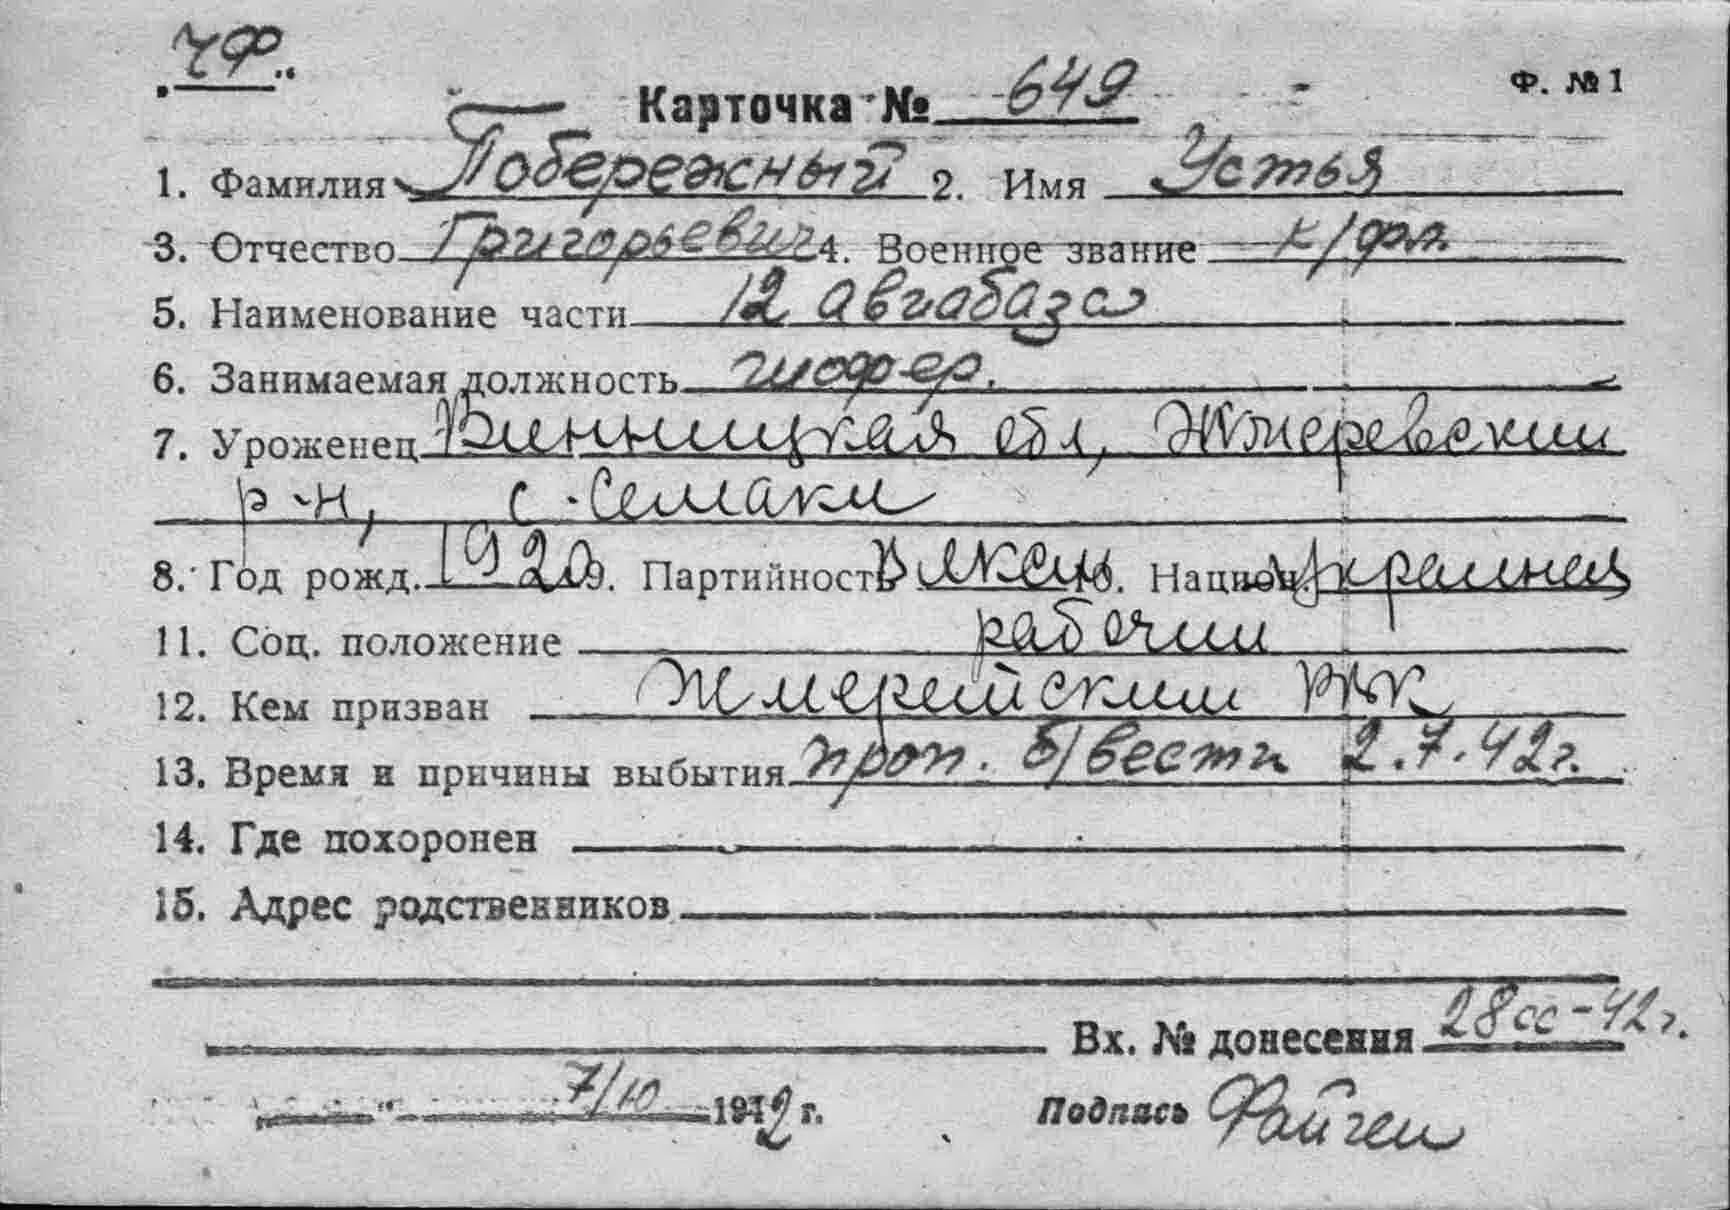 "ЧФ"
Ф. № 1
Карточка № 649
1. Фамилия Побережный 2. Имя Устья
3. Отчество Григорьевич 4. Военное звание к/фл.
5. Наименование части 12 авиабаза
6. Занимаемая должность шофер.
7. Уроженец Винницкая обл, Жмеревский
р-н, с. Семаки
8. Год рожд. 1920 9. Партийность влксм 10. Национ. Украинец
11. Соц. положение рабочий
12. Кем призван Жмерейским РВК
13. Время и причины выбытия проп. б/вести 2.7.42г.
14. Где похоронен
15. Адрес родственников
Вх. № донесения 28сс-42г.
7/10 1942 г. Подпись